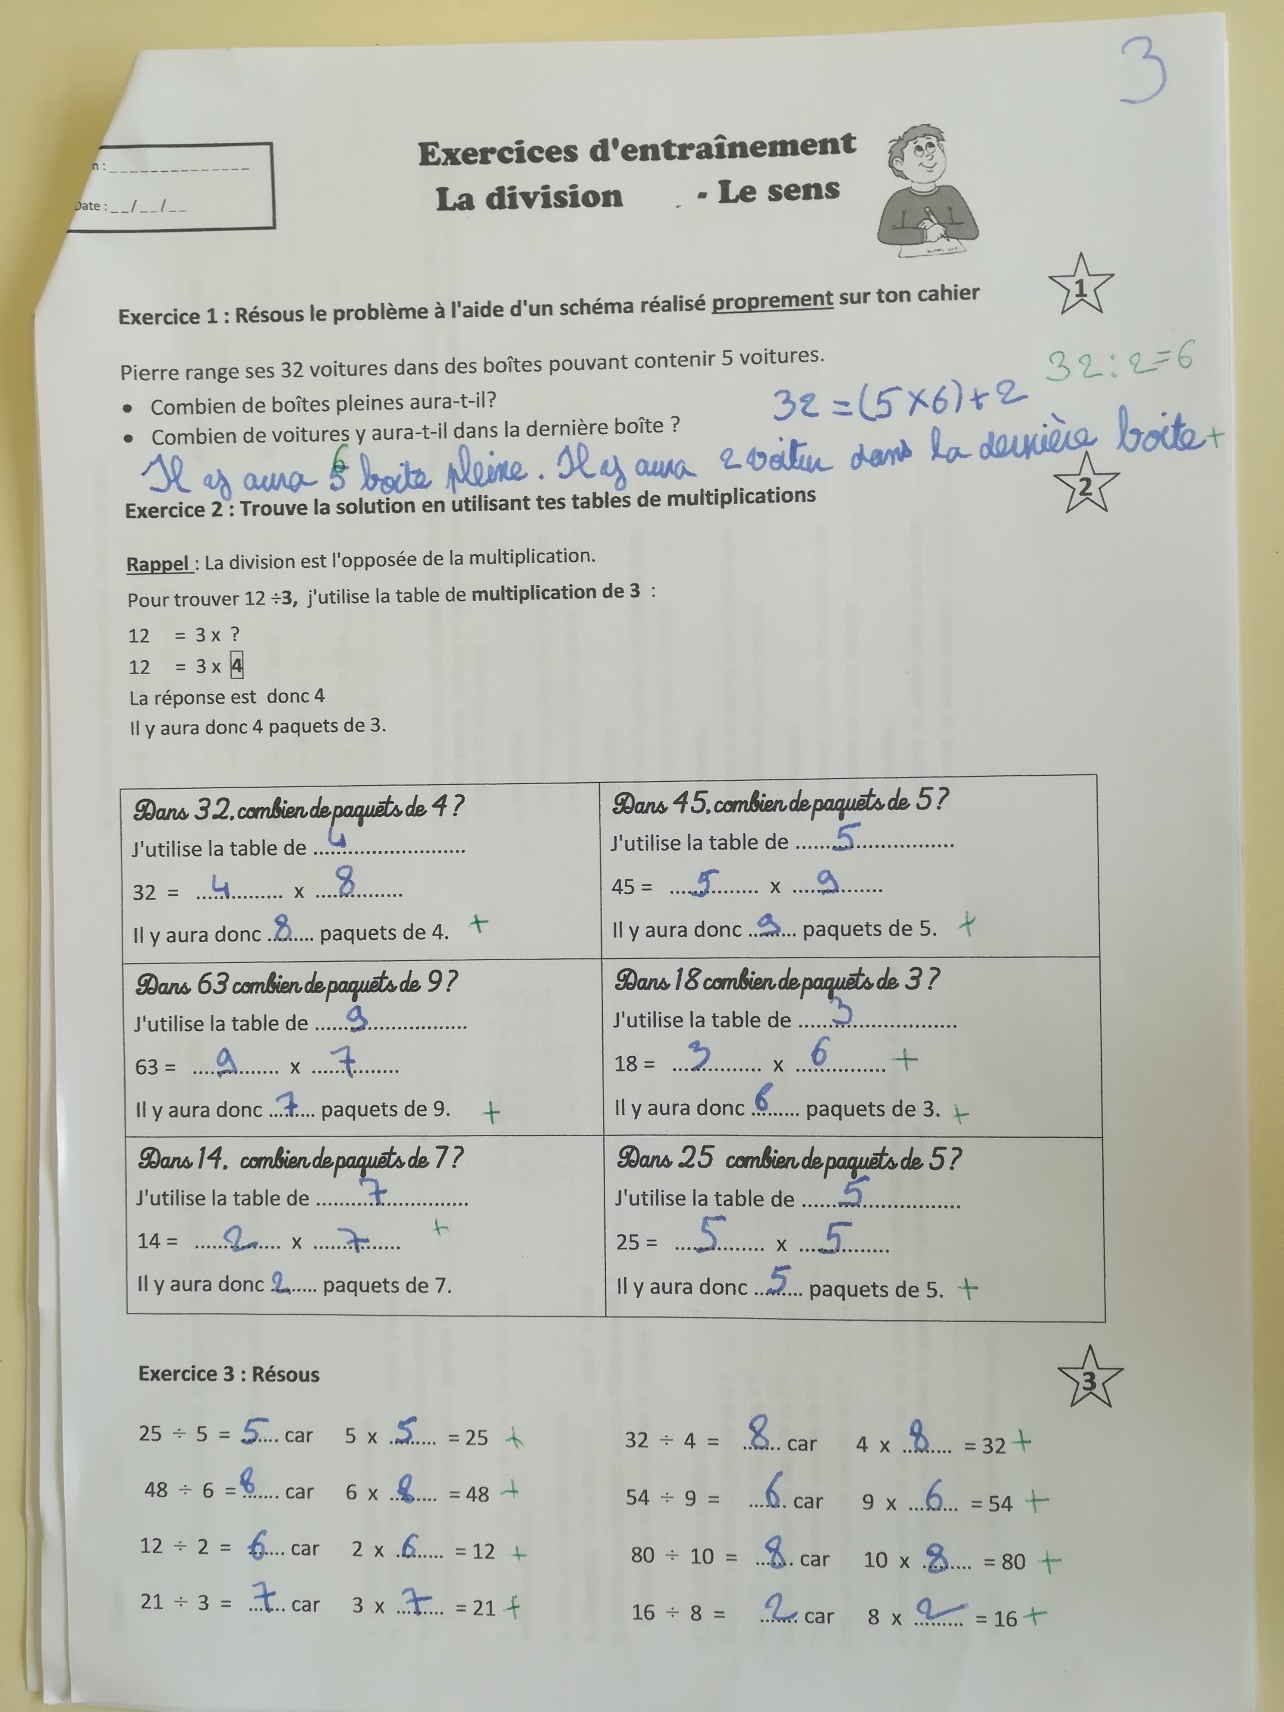 3
n : _ _ _ _ _ _ _ _ _ _ _ _ _ _
Date : _ _ / _ _ / _ _
Exercices d'entraînement
La division - Le sens
1
Exercice 1 : Résous le problème à l'aide d'un schéma réalisé proprement sur ton cahier
Pierre range ses 32 voitures dans des boîtes pouvant contenir 5 voitures.
32 : 2 = 6
• Combien de boîtes pleines aura-t-il?
32 = (5 x 6) + 2
• Combien de voitures y aura-t-il dans la dernière boîte ?
Il y aura 6 boite pleine. Il y aura 2 voitur dans la dernière boite +
2
Exercice 2 : Trouve la solution en utilisant tes tables de multiplications
Rappel : La division est l'opposée de la multiplication.
Pour trouver 12 ÷3, j'utilise la table de multiplication de 3 :
12 = 3 x ?
12 = 3 x 4
La réponse est donc 4
Il y aura donc 4 paquets de 3.
Dans 32, combien de paquets de 4 ?
J'utilise la table de 4
32 = 4 x 8
Il y aura donc 8 paquets de 4. +
Dans 45, combien de paquets de 5 ?
J'utilise la table de 5
45 = 5 x 9
Il y aura donc 9 paquets de 5. +
Dans 63 combien de paquets de 9 ?
J'utilise la table de 9
63 = 9 x 7
Il y aura donc 7 paquets de 9. +
Dans 18 combien de paquets de 3 ?
J'utilise la table de 3
18 = 3 x 6 +
Il y aura donc 6 paquets de 3. +
Dans 14, combien de paquets de 7 ?
J'utilise la table de 7
14 = 2 x 7 +
Il y aura donc 2 paquets de 7.
Dans 25 combien de paquets de 5 ?
J'utilise la table de 5
25 = 5 x 5
Il y aura donc 5 paquets de 5. +
Exercice 3 : Résous
3
25 ÷ 5 = 5 car 5 x 5 = 25 +
32 ÷ 4 = 8 car 4 x 8 = 32 +
48 ÷ 6 = 8 car 6 x 8 = 48 +
54 ÷ 9 = 6 car 9 x 6 = 54 +
12 ÷ 2 = 6 car 2 x 6 = 12 +
80 ÷ 10 = 8 car 10 x 8 = 80 +
21 ÷ 3 = 7 car 3 x 7 = 21 +
16 ÷ 8 = 2 car 8 x 2 = 16 +